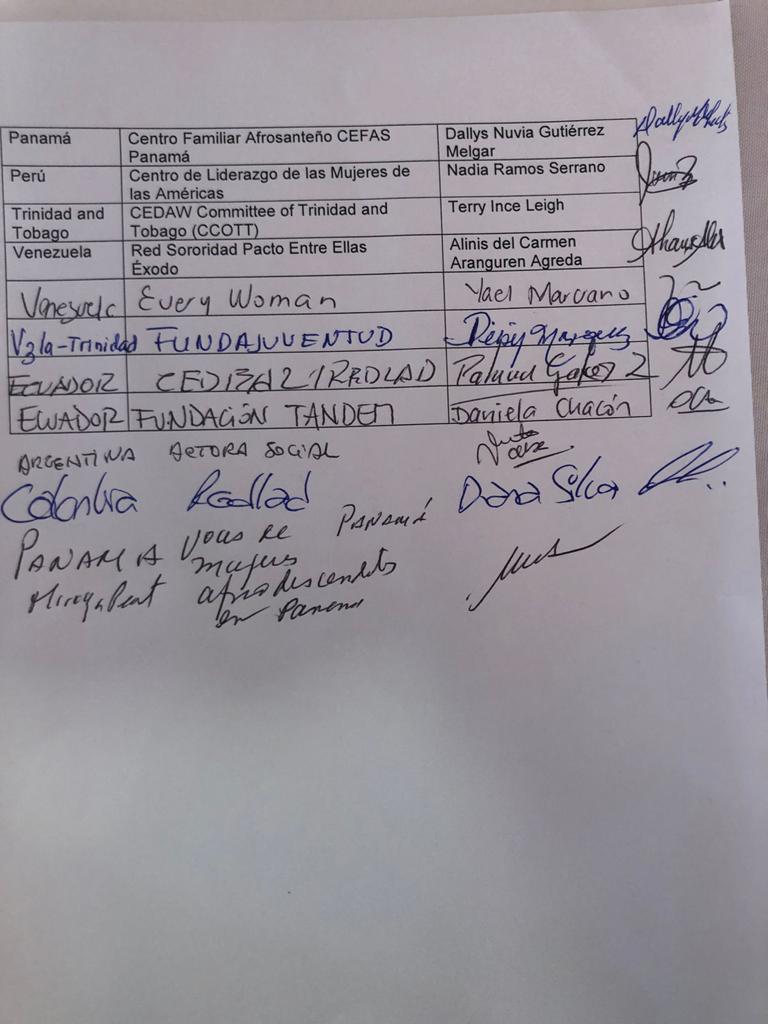 Panamá Centro Familiar Afrosanteño CEFAS Dallys Nuvia Gutiérrez
Panamá Melgar
Perú Centro de Liderazgo de las Mujeres de Nadia Ramos Serrano
las Américas
Trinidad and CEDAW Committee of Trinidad and Terry Ince Leigh
Tobago Tobago (CCOTT)
Venezuela Red Sororidad Pacto Entre Ellas Alinis del Carmen
Éxodo Aranguren Agreda
Venezuela Every Woman Yael Marciano
Vzla-Trinidad FUNDAJUVENTUD
ECUADOR
ECUADOR FUNDACIÓN TANDEM Daniela Chacón
ARGENTINA ACTORA SOCIAL
Colombia Redlad Silva
PANAMA Voces de PANAMÁ
mujeres
afrodescendets
en Panama